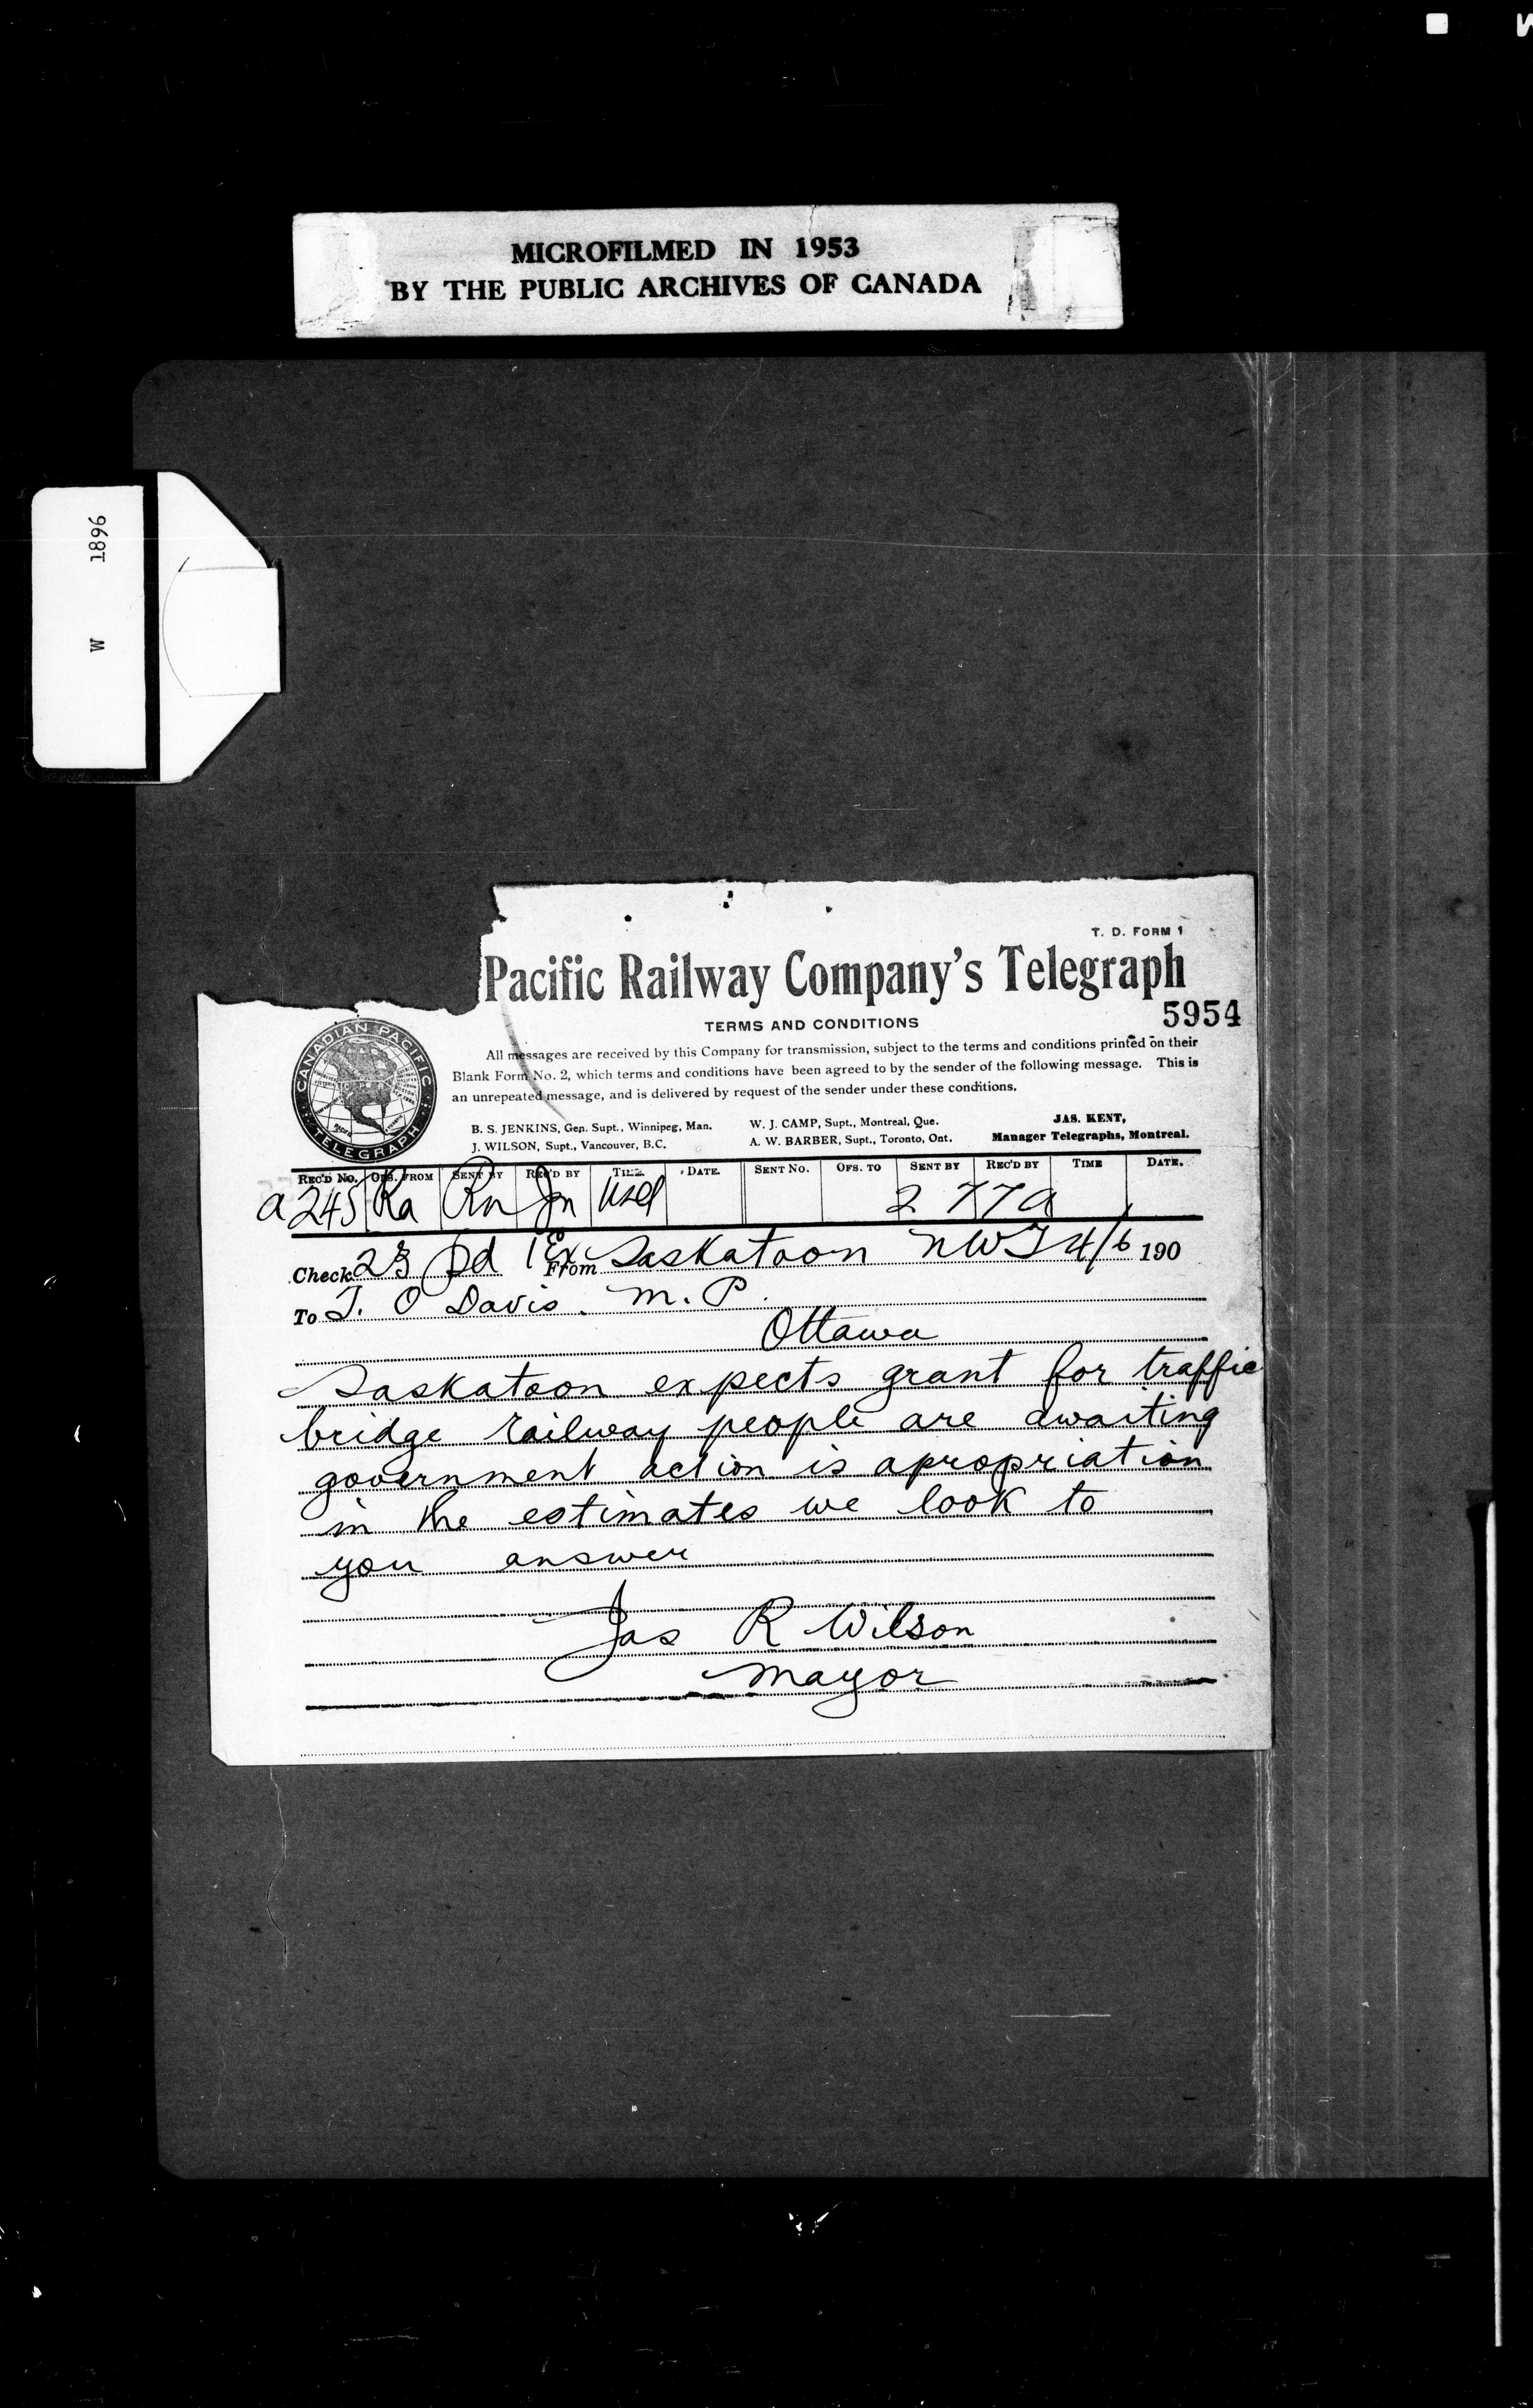 MICROFILMED IN 1953
BY THE PUBLIC ARCHIVES OF CANADA
W 1896
T. D. FORM 1
Pacific Railway Company's Telegraph
5954
TERMS AND CONDITIONS
All messages are received by this Company for transmission, subject to the terms and conditions printed on their
Blank Form No. 2, which terms and conditions have been agreed to by the sender of the following message. This is
an unrepeated message, and is delivered by request of the sender under these conditions.
CANADIAN PACIFIC
TELEGRAPH
B. S. JENKINS, Gen. Supt., Winnipeg, Man. W. J. CAMP, Supt., Montreal, Que. JAS. KENT,
J. WILSON, Supt., Vancouver, B.C. A. W. BARBER, Supt., Toronto, Ont. Manager Telegraphs, Montreal.
REC'D No. OFS. FROM SENT BY REC'D BY TIME DATE. SENT No. OFS. TO SENT BY REC'D BY TIME DATE.
a 245 Ka Rn Jn 2 77a
Check 23 Pd 1 Ex From Saskatoon NWT 4/6 190
To T. O Davis. M. P.
Ottawa
Saskatoon expects grant for traffic
bridge railway people are awaiting
government action is apropriation
in the estimates we look to
you answer
Jas R Wilson
Mayor